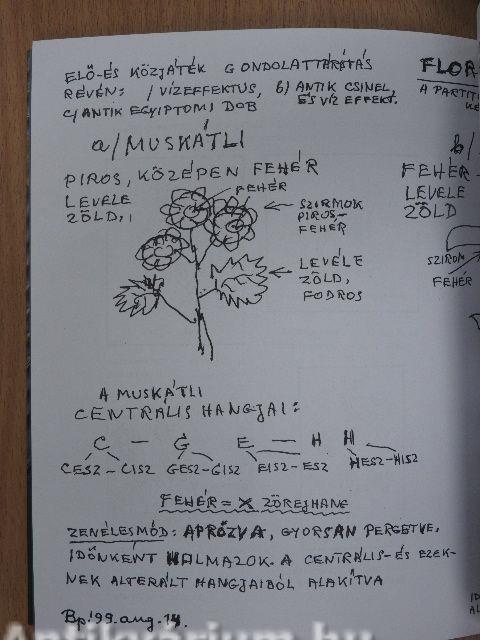 ELŐ-ÉS KÖZJÁTÉK GONDOLATTÁRSÍTÁS
RÉVÉN: / VÍZEFFEKTUS, b) ANTIK CSINEL,
ÉS VÍZ EFFEKT.
c/ ANTIK EGYIPTOMI DOB
a/ MUSKÁTLI
PIROS, KÖZÉPEN FEHÉR
LEVELE
ZÖLD,
FEHÉR
SZIRMOK
PIROS-
FEHÉR
LEVÉLE
ZÖLD,
FODROS
A MUSKÁTLI
CENTRALIS HANGJAI:
C — G E — H H
CESZ-CISZ GESZ-GISZ EISZ-ESZ HESZ-HISZ
FEHÉR = X ZÖREJHANG
ZENÉLÉSMÓD: APRÓZVA, GYORSAN PERGETVE,
IDŐNKÉNT HALMAZOK. A CENTRÁLIS- ÉS EZEK-
NEK ALTERÁLT HANGJAIBÓL ALAKÍTVA
Bp. '99. aug. 14.
FLOR
A PARTIT
b/
FEHÉR
LEVELE
ZÖLD
SZIROM
FEHÉR
Antikvarium.hu